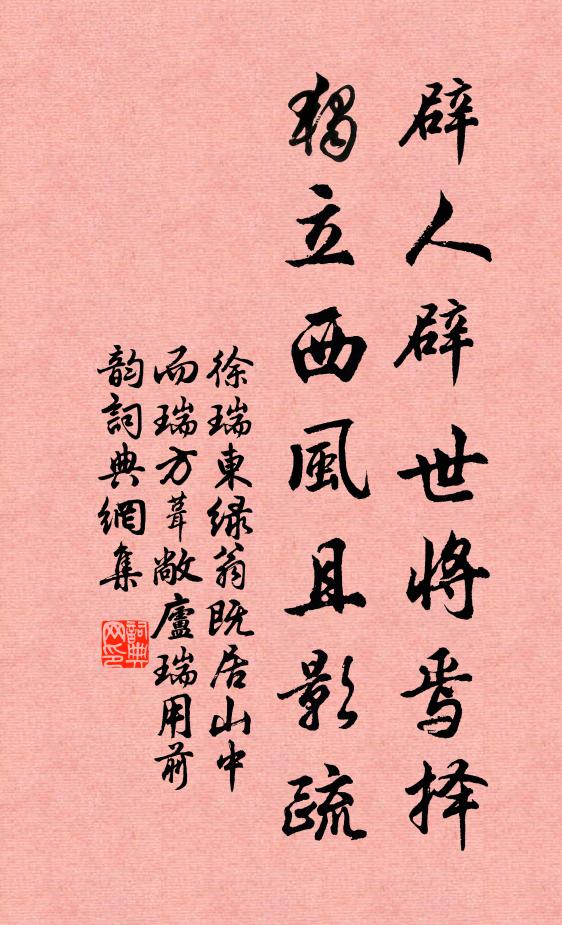 辟人辟世将焉择
獨立西風且影疏
徐瑞東绿翁既居山中
而瑞方葺敝廬瑞用前
韵詞典網集
詞典網印